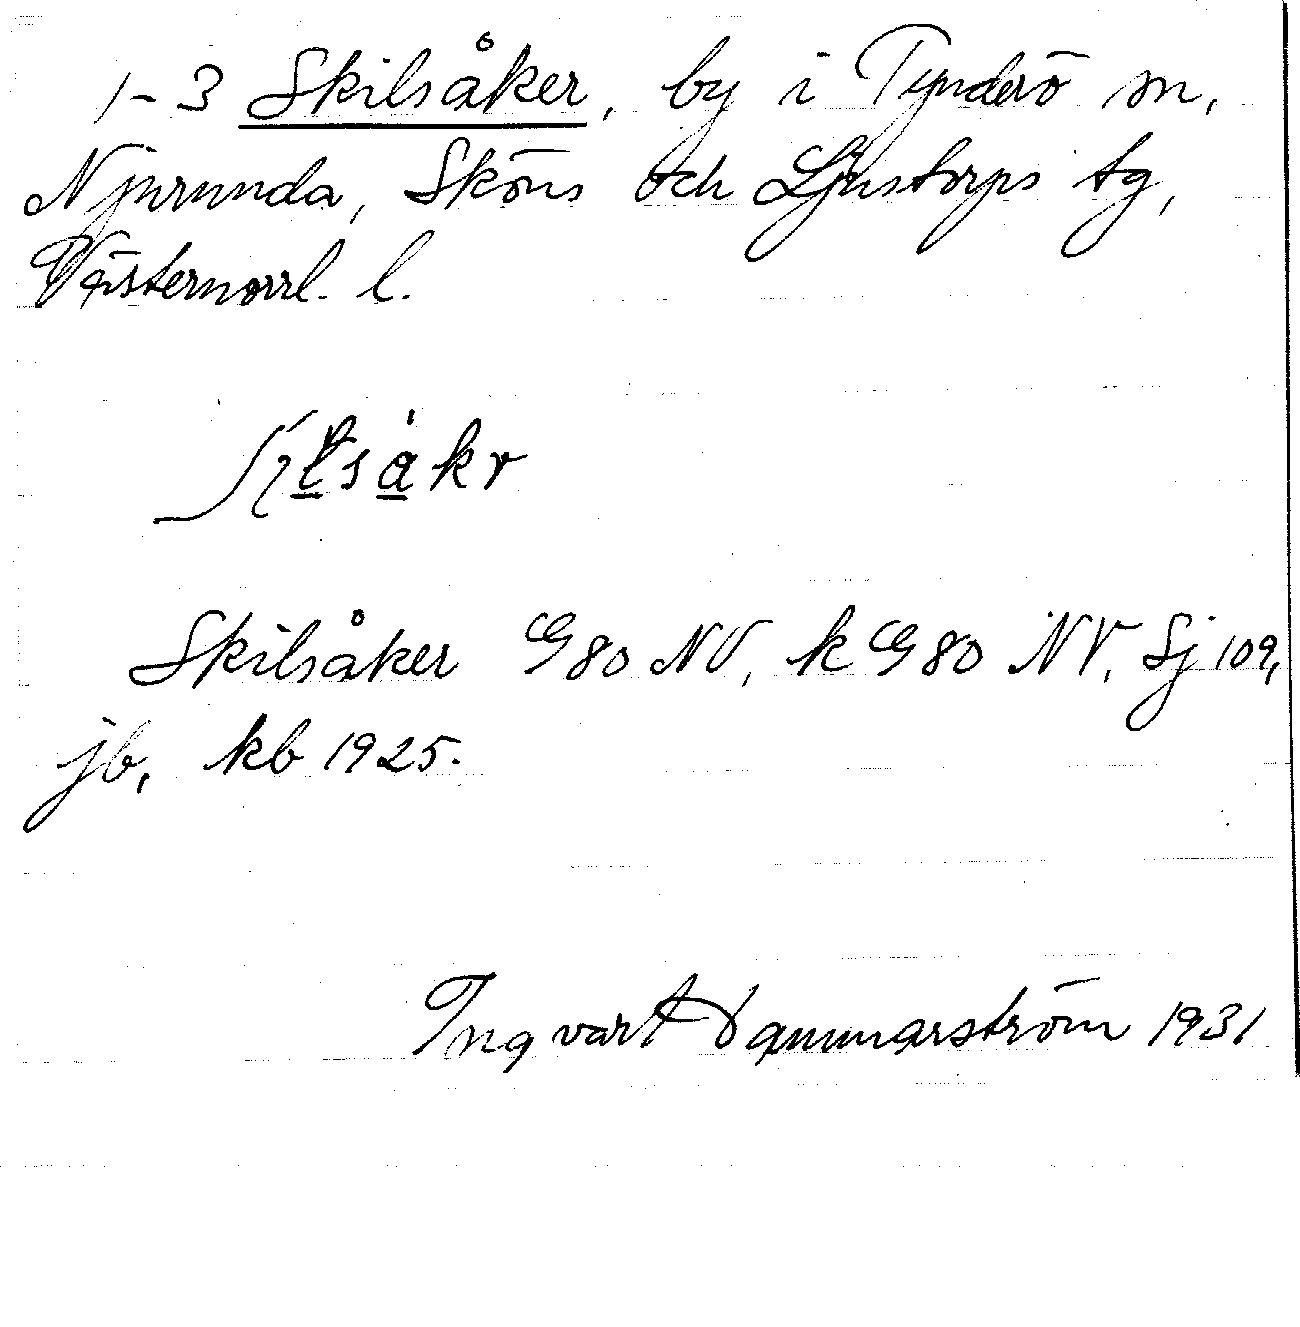 1-3 Skilsåker, by i Tynderö sn,
Njurunda, Sköns och Ljustorps tg,
Västernorrl. l.
Skilsåker G80 NV, k G80 NV, Sj 109,
jb, kb 1925.
Ingvart Dammarström 1931